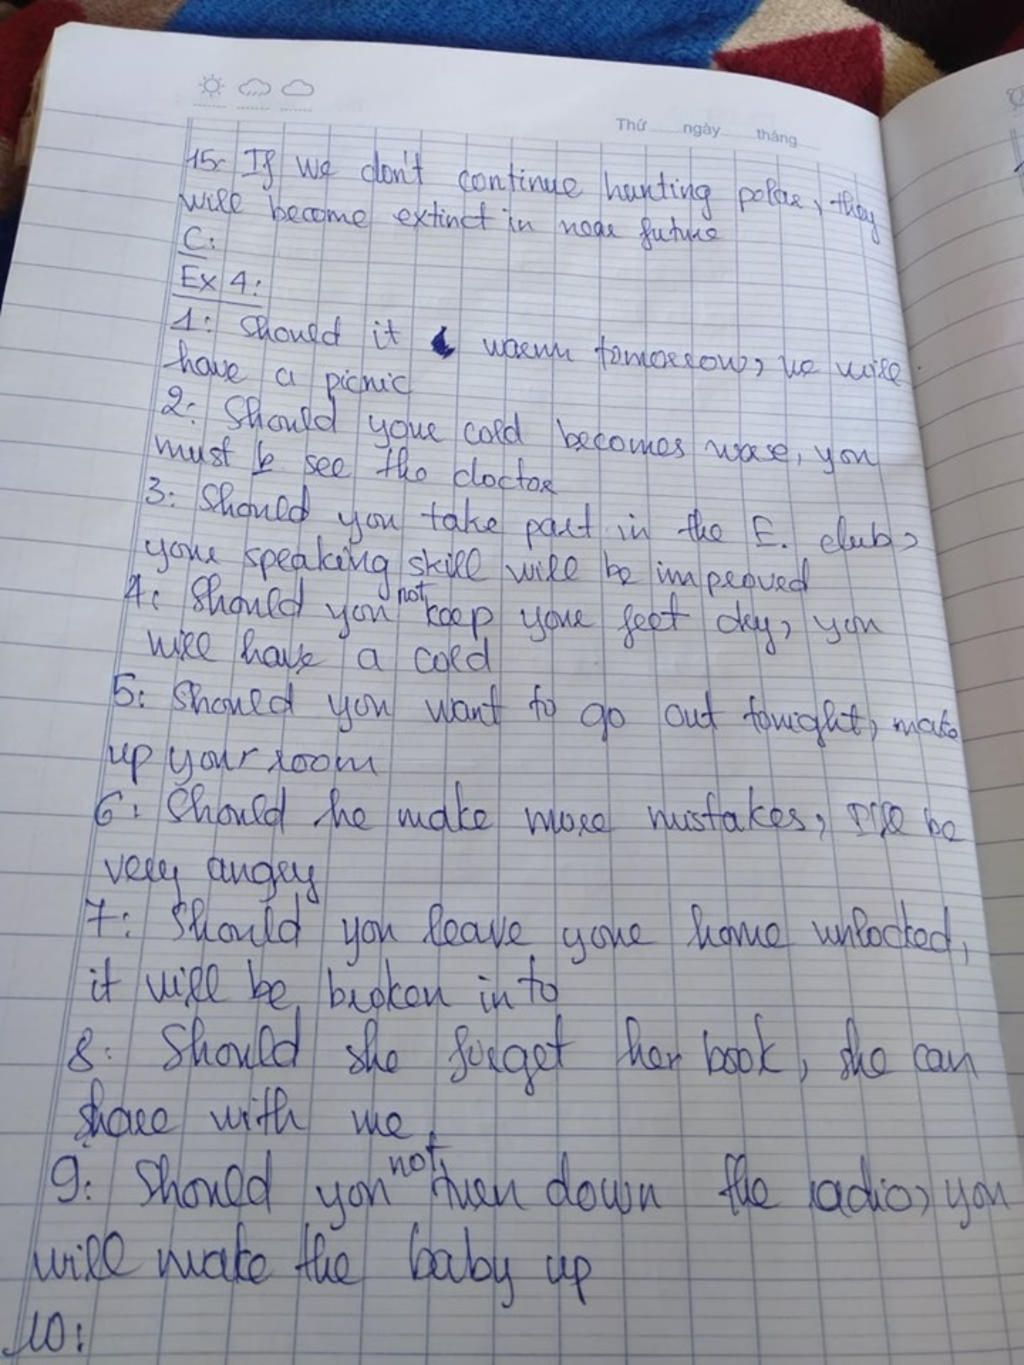 Thứ ngày tháng
15: If we don't continue hunting polar, they
will become extinct in near future
C:
Ex 4:
1: Should it warm tomorrow, we will
have a picnic
2: Should your cold becomes worse, you
must see the doctor
3: Should you take part in the E. club,
your speaking skill will be improved
4: Should you not keep your feet dry, you
will have a cold
5: Should you want to go out tonight, make
up your room
6: Should he make more mistakes, I'll be
very angry
7: Should you leave your home unlocked,
it will be broken into
8: Should she forget her book, she can
share with me
9: Should you not turn down the radio, you
will make the baby up
10: